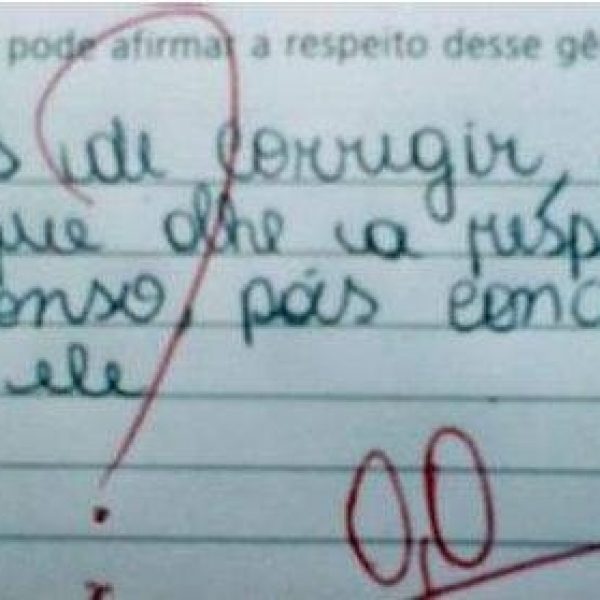 pode afirmar a respeito desse gê
s de corrigir,
que olhe a resp
onso, pós conc
ele
0,0